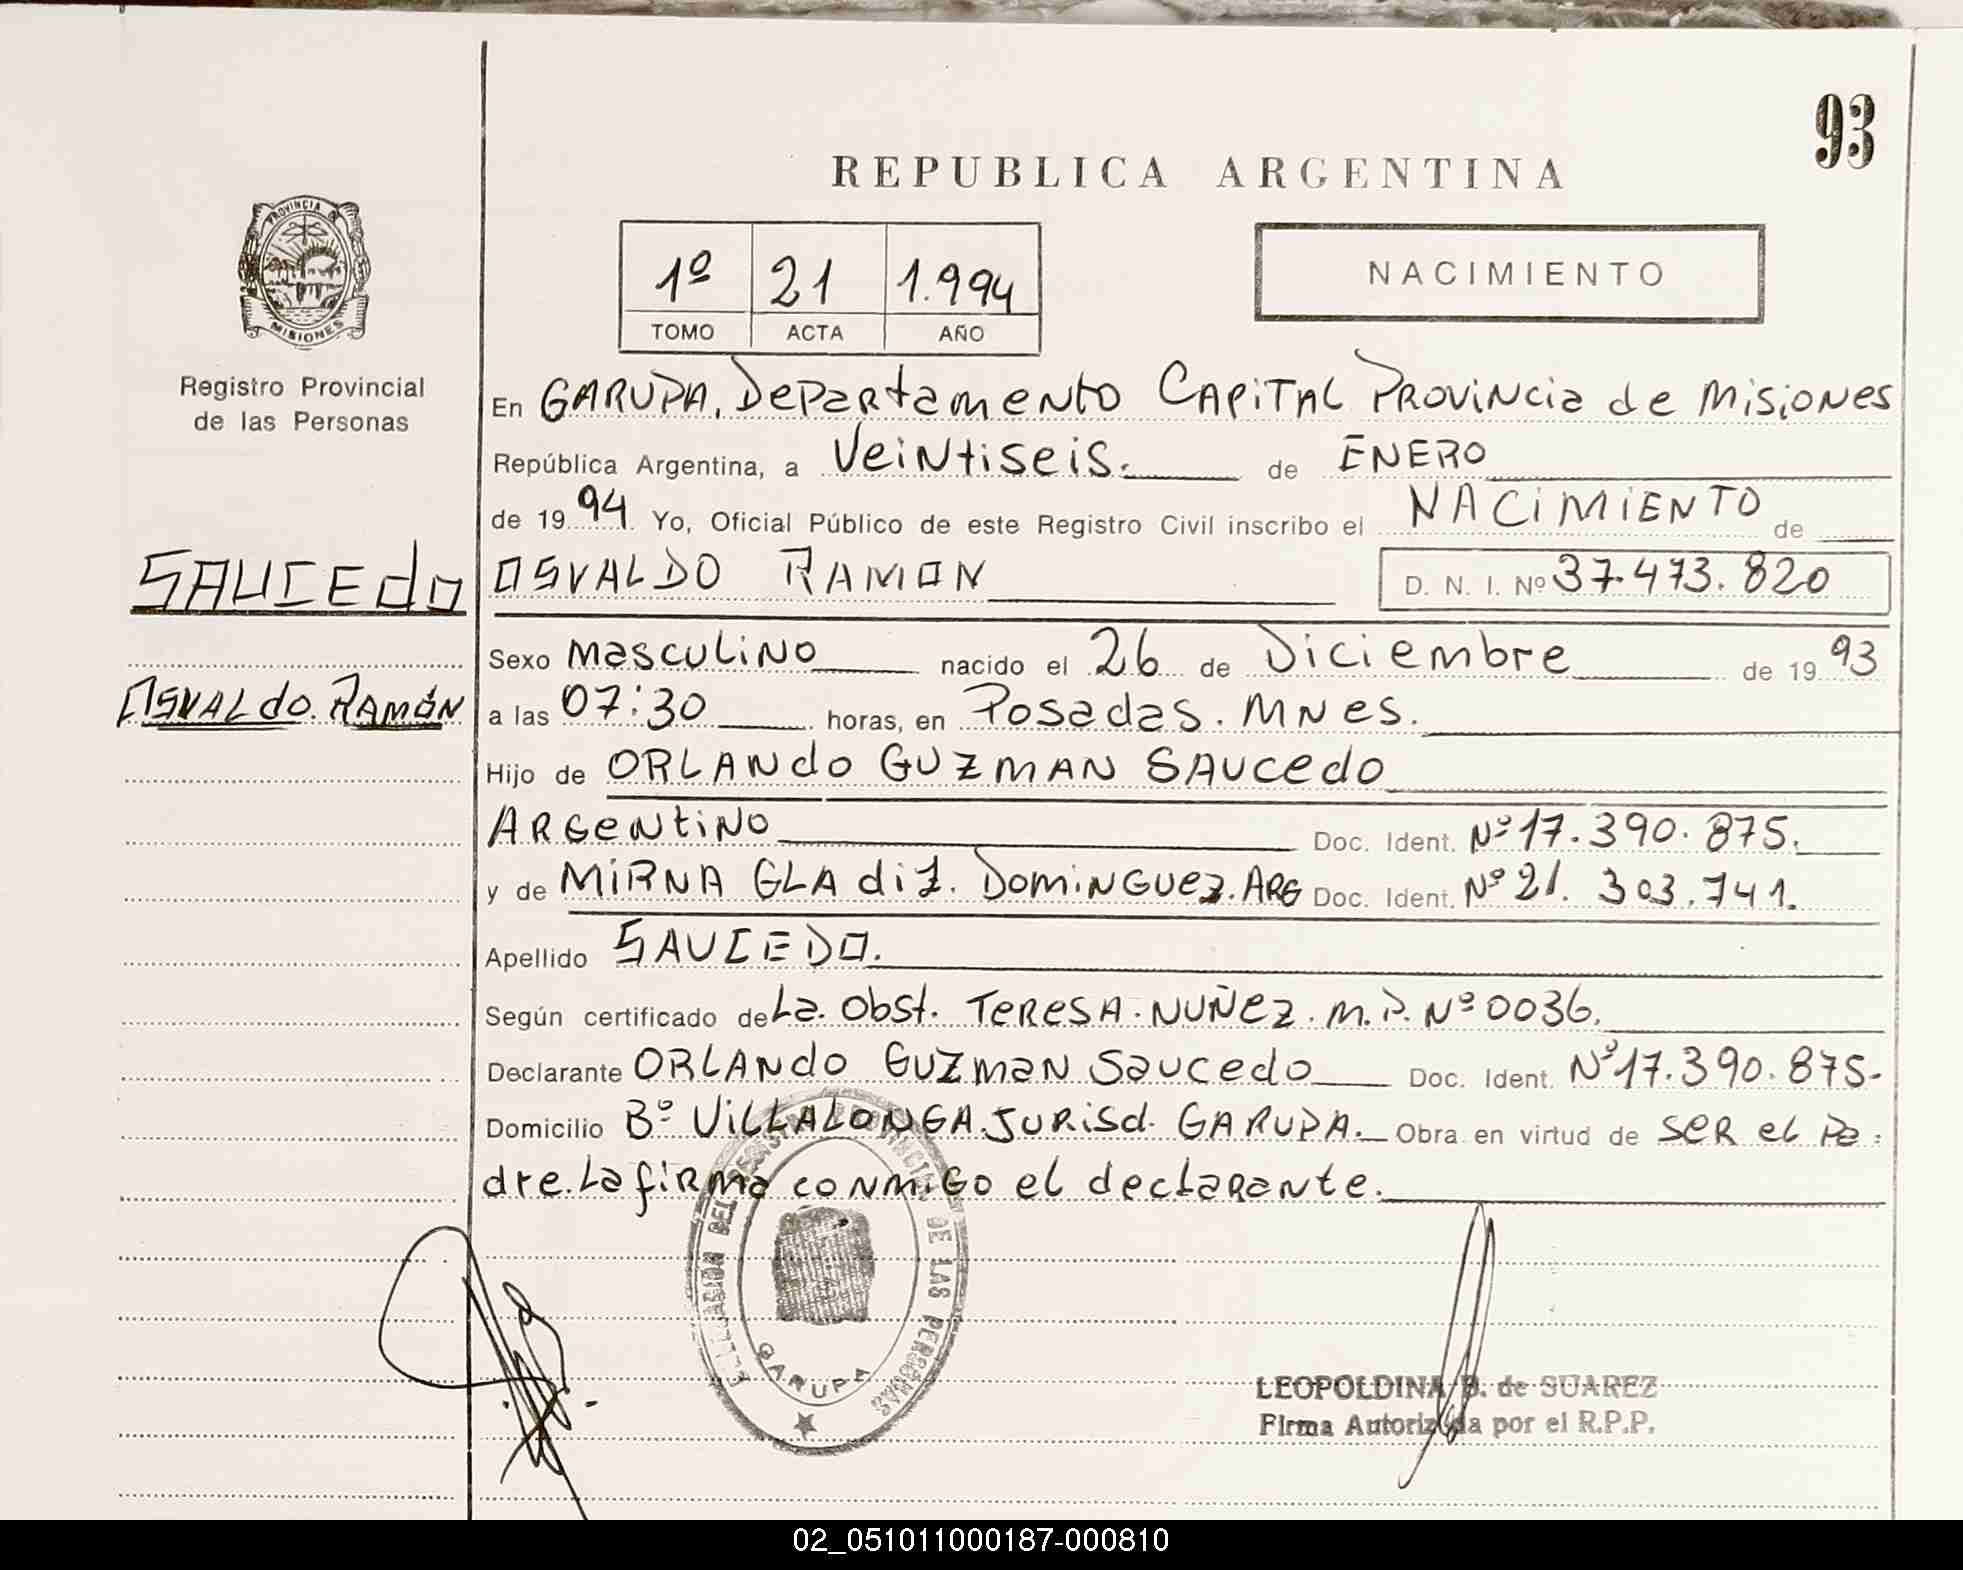 93
REPUBLICA ARGENTINA
PROVINCIA DE
MISIONES
Registro Provincial
de las Personas
1º 21 1.994
TOMO ACTA AÑO
NACIMIENTO
En GARUPA. Departamento CAPITAL Provincia de Misiones
República Argentina, a Veintiseis. de ENERO
de 1994 Yo, Oficial Público de este Registro Civil inscribo el NACIMIENTO de
SAUCEDO OSVALDO RAMON D. N. I. Nº 37.473.820
Sexo Masculino nacido el 26 de Diciembre de 1993
OSVALDO. RAMÓN a las 07:30 horas, en Posadas. MNES.
Hijo de ORLANDO GUZMAN SAUCEDO
ARGENTINO Doc. Ident. Nº 17.390.875.
y de MIRNA GLADIZ. DOMINGUEZ. ARG Doc. Ident. Nº 21.303.741.
Apellido SAUCEDO.
Según certificado de La. Obst. TERESA. NUÑEZ. M.P. Nº 0036.
Declarante ORLANDO GUZMAN SAUCEDO Doc. Ident. Nº 17.390.875-
Domicilio Bº VILLALONGA. JURISD. GARUPA. Obra en virtud de SER el Pa-
dre. La firma conmigo el declarante.
DELEGACION DEL REGISTRO PROVINCIAL DE LAS PERSONAS
GARUPA
LEOPOLDINA B. de SUAREZ
Firma Autorizada por el R.P.P.
02_051011000187-000810